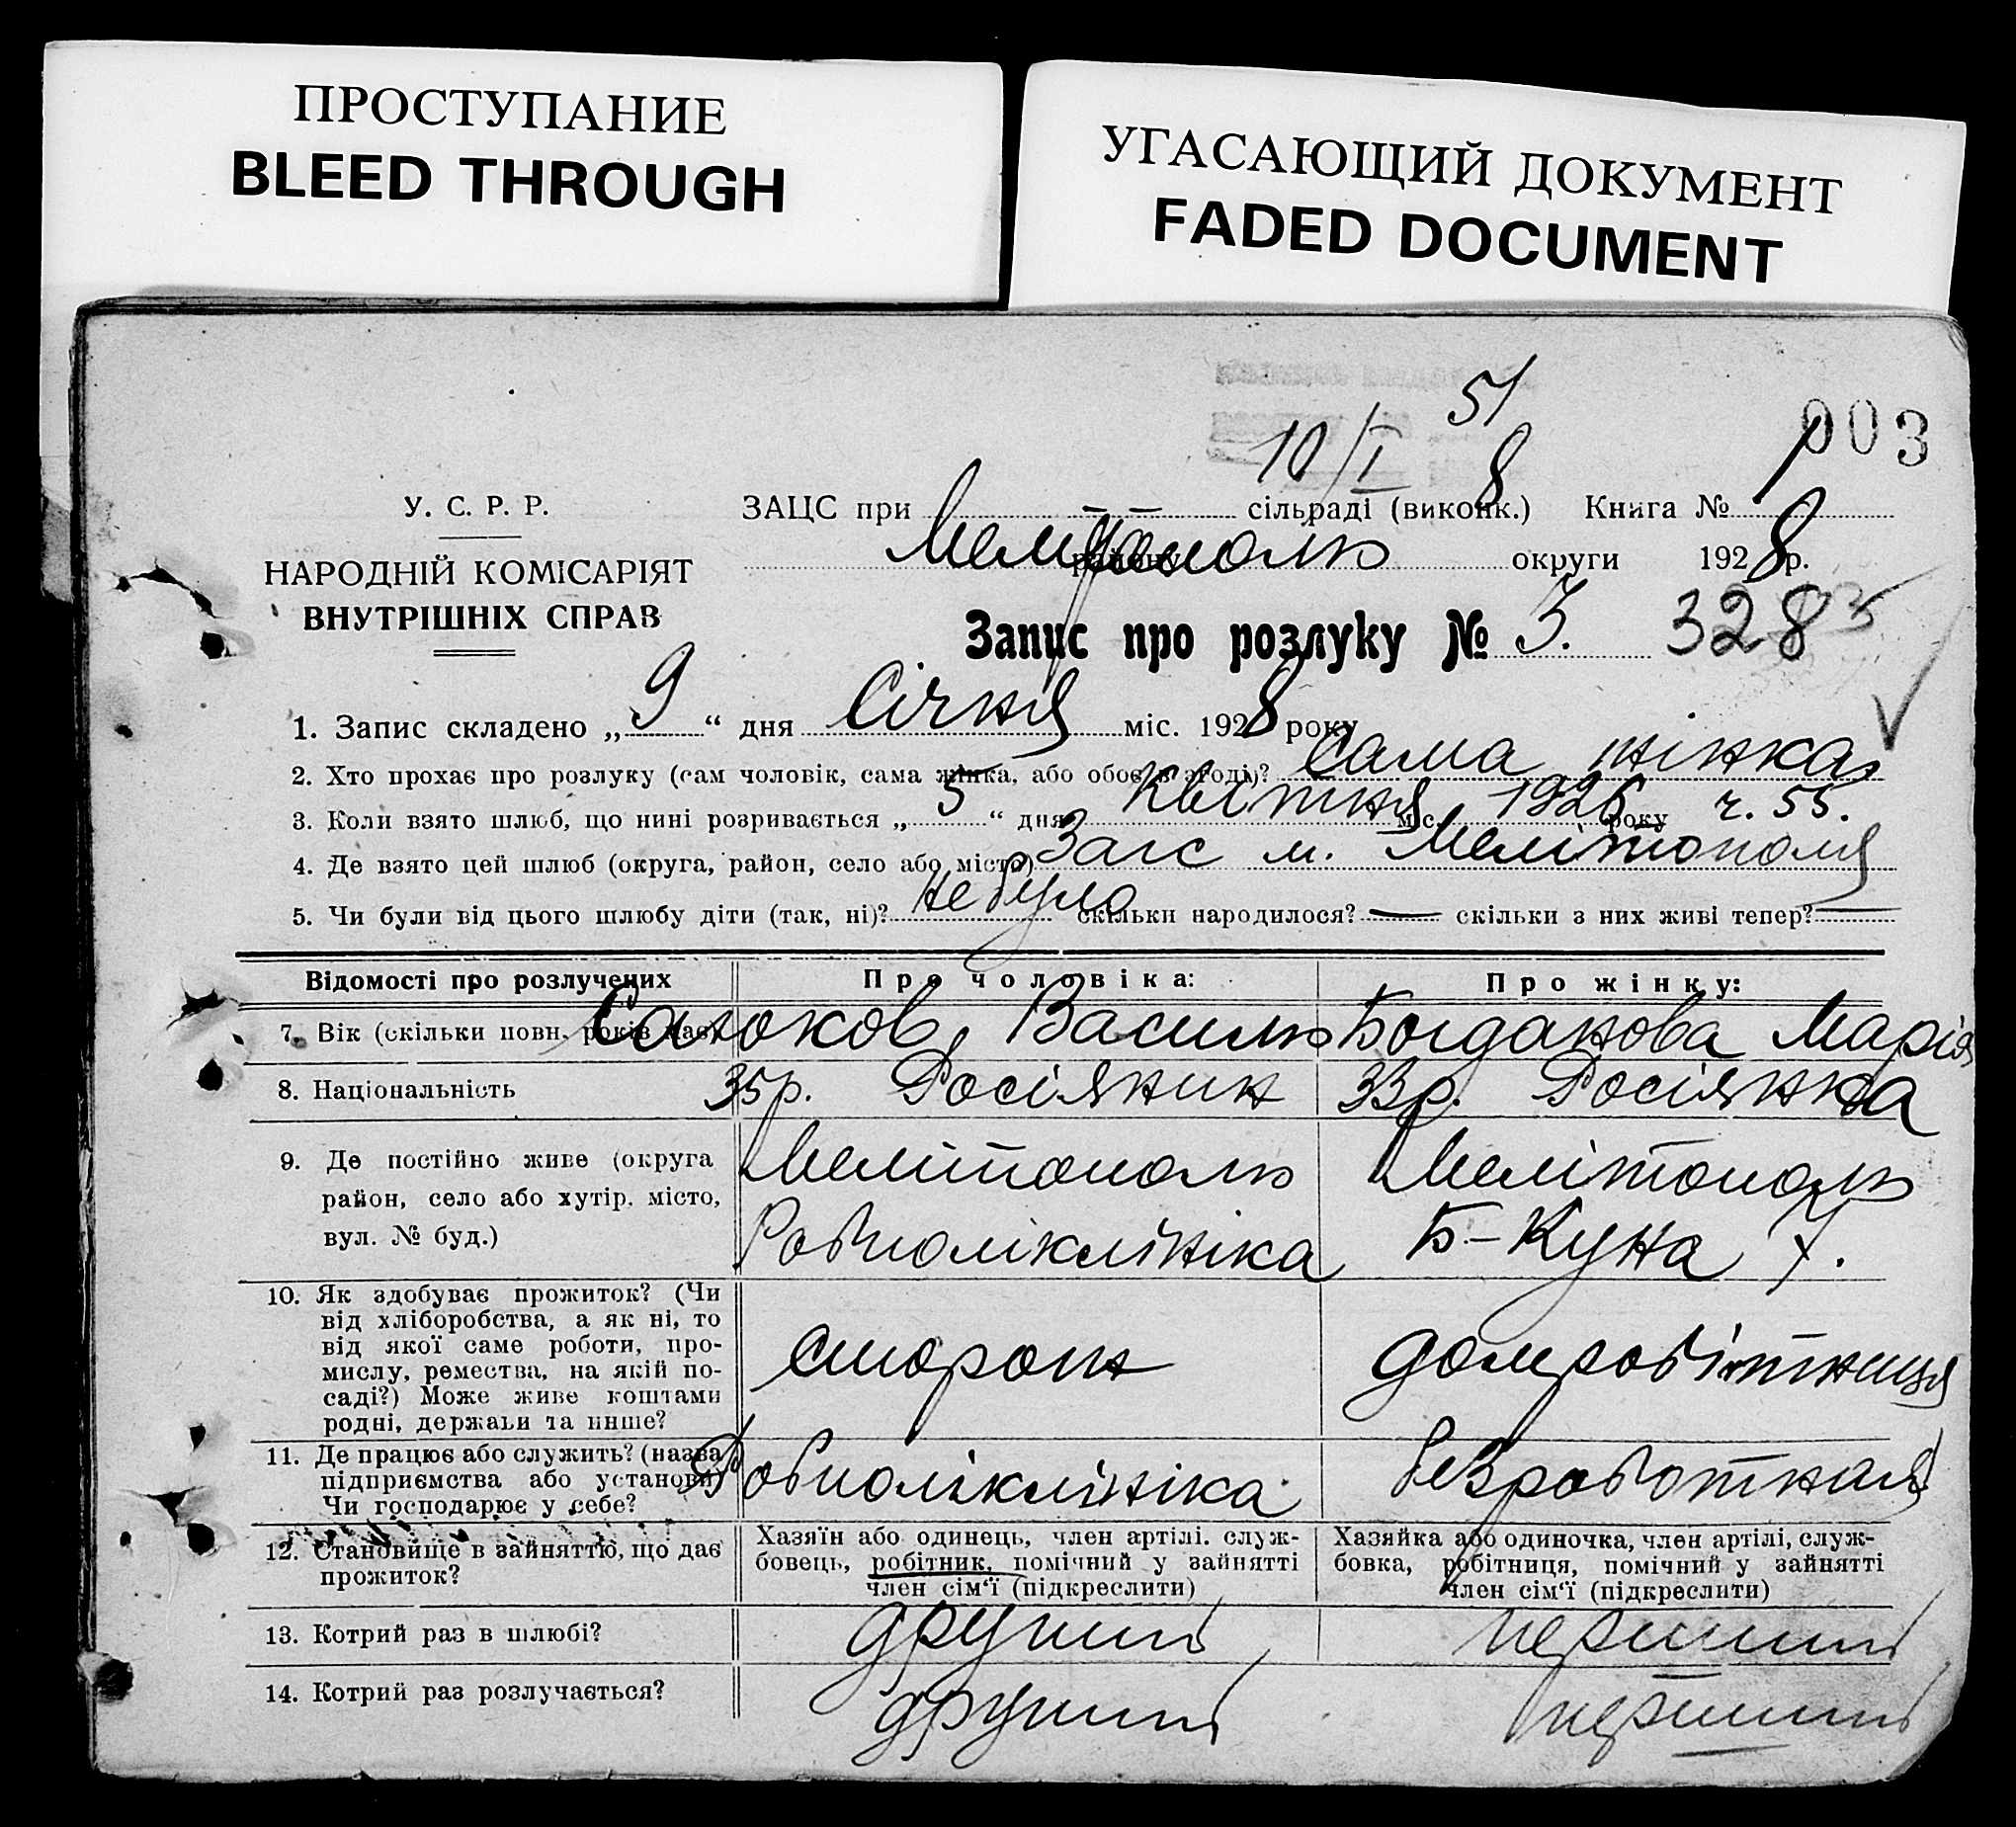 ПРОСТУПАНИЕ
BLEED THROUGH
УГАСАЮЩИЙ ДОКУМЕНТ
FADED DOCUMENT
51
10/I 8
003
У. С. Р. Р.
НАРОДНІЙ КОМІСАРІЯТ
ВНУТРІШНІХ СПРАВ
ЗАЦС при — — сільраді (виконк.) Книга № 1
Мелітополь району округи 1928 р.
Запис про розлуку № 3. 328
1. Запис складено „9“ дня Січня міс. 1928 року
2. Хто прохає про розлуку (сам чоловік, сама жінка, або обоє в згоді)? сама жінка
3. Коли взято шлюб, що нині розривається „5“ дня Квітня міс. 1926 року ч. 55.
4. Де взято цей шлюб (округа, район, село або місто) Загс м. Мелітополя
5. Чи були від цього шлюбу діти (так, ні)? не було скільки народилося? — скільки з них живі тепер? —
Відомості про розлучених Про чоловіка: Про жінку:
7. Вік (скільки повн. років має) Василь Богданова Марія
8. Національність 35р. Росіянин 33р. Росіянка
9. Де постійно живе (округа район, село або хутір, місто, вул. № буд.)
Мелітополь
Робполіклініка
Мелітополь
Б-Куна 7.
10. Як здобуває прожиток? (Чи
від хліборобства, а як ні, то
від якої саме роботи, про-
мислу, ремества, на якій по-
саді?) Може живе коштами
родні, держави та инше?
сторож
домробітниця
11. Де працює або служить? (назва
підприємства або установи)
Чи господарює у себе?
Робполіклініка
безроботная
12. Становище в зайняттю, що дає
прожиток?
Хазяїн або одинець, член артілі. служ-
бовець, робітник, помічний у зайнятті
член сім‘ї (підкреслити)
Хазяйка або одиночка, член артілі, служ-
бовка, робітниця, помічний у зайнятті
член сім‘ї (підкреслити)
13. Котрий раз в шлюбі? другий перший
14. Котрий раз розлучається? другий перший